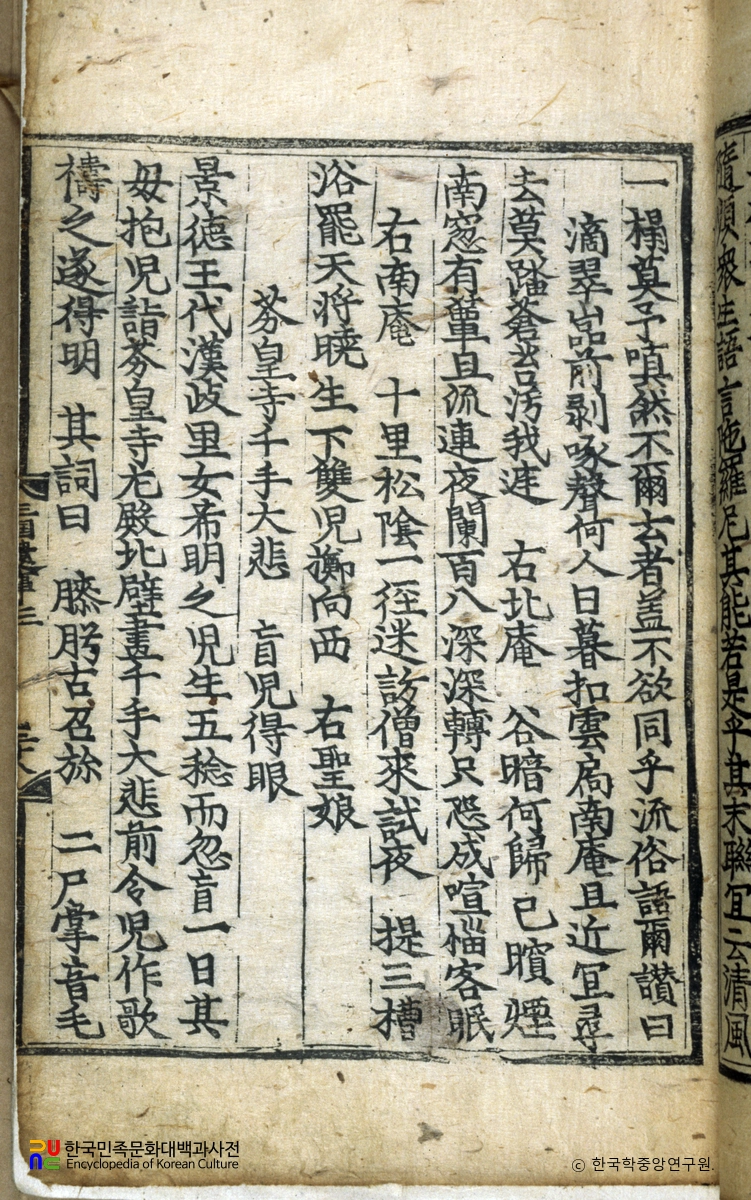 隨順衆生語言陁羅尼其能若是乎其末聯宜云清風
一榻莫予嗔然不爾云者盖不欲同乎流俗語爾讚曰
滴翠嵓前剥啄聲何人日暮扣雲扃南庵且近宜尋
去莫踏蒼苔污我庭 右北庵 谷暗何歸已暝煙
南窓有簟且流連夜闌百八深深轉只恐成喧惱客眠
右南庵 十里松陰一徑迷訪僧來試夜 提三槽
浴罷天將曉生下雙児擲向西 右聖娘
芬皇寺千手大悲 盲児得眼
景徳王代漢歧里女希明之児生五稔而忽盲一日其
母抱児詣芬皇寺左殿北壁畫千手大悲前令児作歌
禱之遂得明 其詞曰 膝肹古召旀 二尸掌音毛
한국민족문화대백과사전
Encyclopedia of Korean Culture
© 한국학중앙연구원